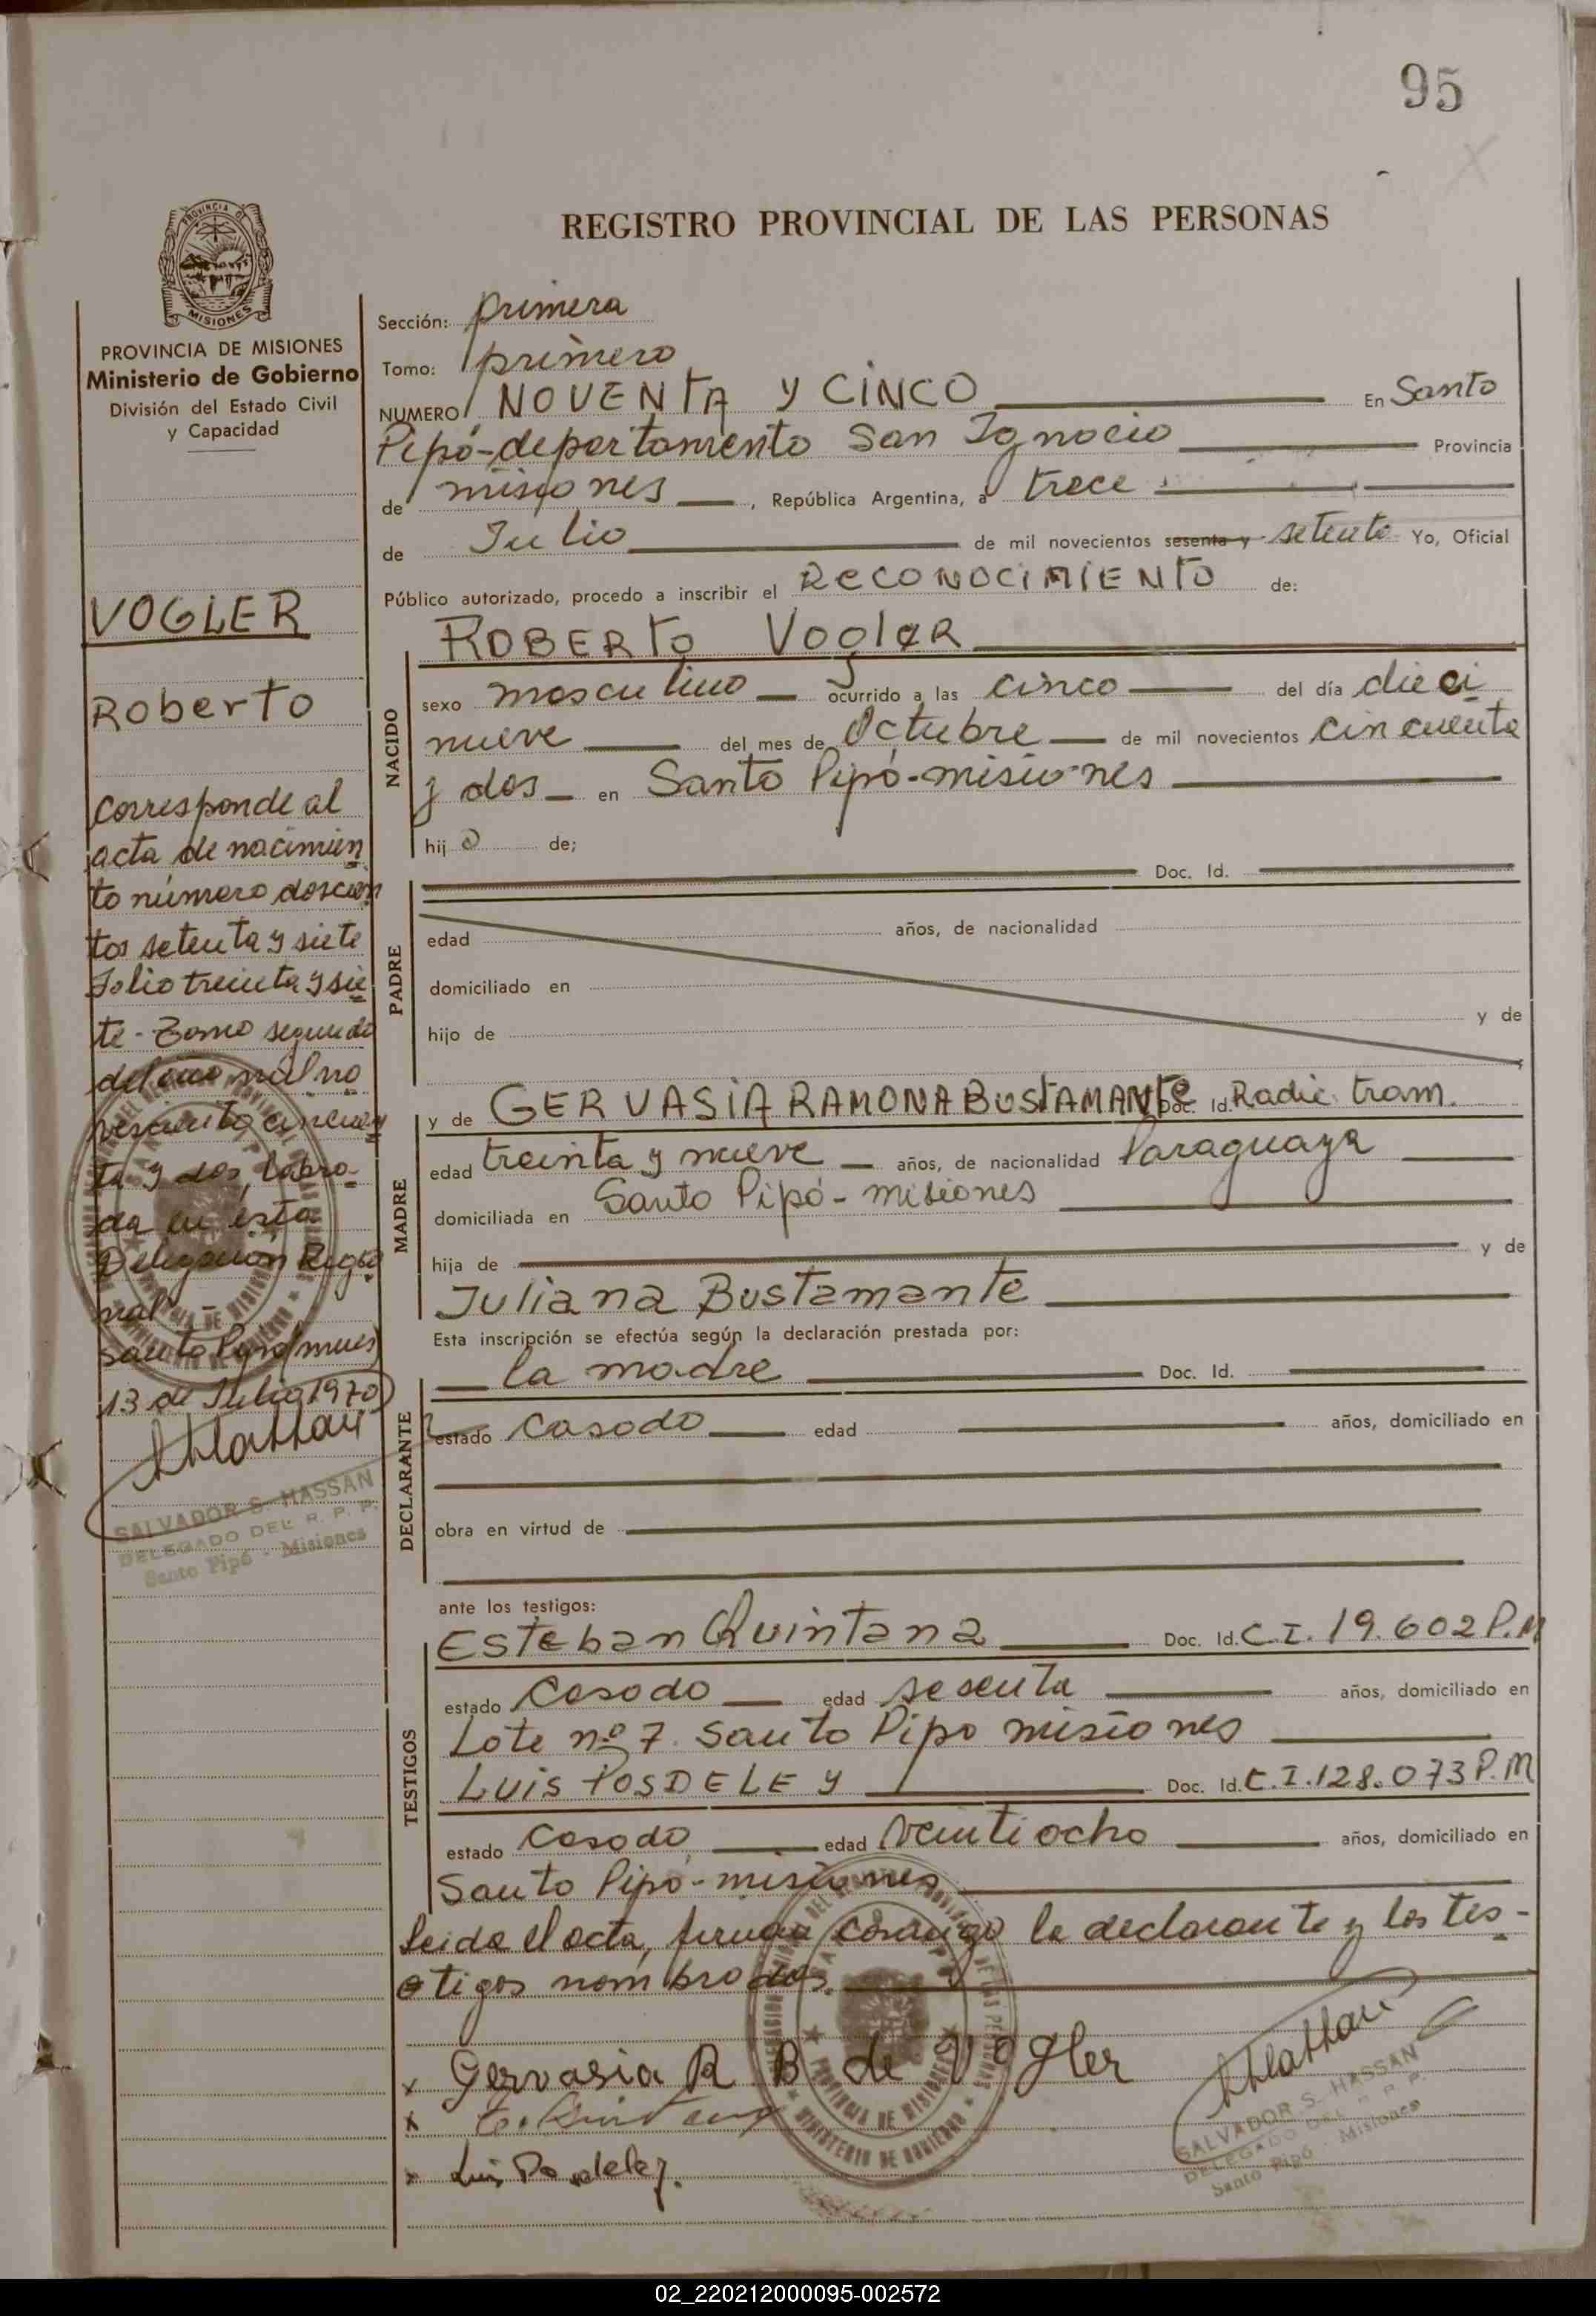 95
REGISTRO PROVINCIAL DE LAS PERSONAS
PROVINCIA DE MISIONES
Ministerio de Gobierno
División del Estado Civil
y Capacidad
VOGLER
Roberto
Corresponde al
acta de nacimien
to número doscien
tos setenta y siete
Folio treinta y sie
te - Tomo segundo
del año mil no
veciento cincuen
ta y dos, labra-
da en esta
Delegación Regio
nal -
Santo Pipó (mnes)
13 de Julio 1970
SALVADOR S. HASSAN
DELEGADO DEL R. P. P.
Santo Pipó - Misiones
Sección: primera
Tomo: primero
NUMERO NOVENTA Y CINCO En Santo
Pipó-departamento San Ignacio Provincia
de misiones, República Argentina, a trece
de Julio de mil novecientos sesenta y setenta Yo, Oficial
Público autorizado, procedo a inscribir el RECONOCIMIENTO de:
NACIDO
ROBERTO VoglER
sexo masculino ocurrido a las cinco del día dieci
nueve del mes de Octubre de mil novecientos cincuenta
y dos en Santo Pipó-misiones
hij o de;
Doc. Id.
PADRE
edad años, de nacionalidad
domiciliado en
hijo de y de
MADRE
y de GERVASIA RAMONA BUSTAMANTE Doc. Id. Radic. tram.
edad treinta y nueve años, de nacionalidad Paraguaya
domiciliada en Santo Pipó - misiones
hija de y de
Juliana Bustamante
Esta inscripción se efectúa según la declaración prestada por:
DECLARANTE
la madre Doc. Id.
estado casado edad años, domiciliado en
obra en virtud de
ante los testigos:
TESTIGOS
Esteban Quintana Doc. Id. C.I. 19.602 P.M
estado casado edad sesenta años, domiciliado en
Lote nº 7. Santo Pipo misiones
LUIS POSDELEY Doc. Id. C.I. 128.073 P.M
estado casado edad veintiocho años, domiciliado en
Santo Pipó-misiones
Leida el acta, firman conmigo la declarante y los tes-
tigos nombrados.
x Gervasia R B de Vogler
x
x Luis Posdeley.
SALVADOR S. HASSAN
DELEGADO DEL R. P. P.
Santo Pipó - Misiones
02_220212000095-002572